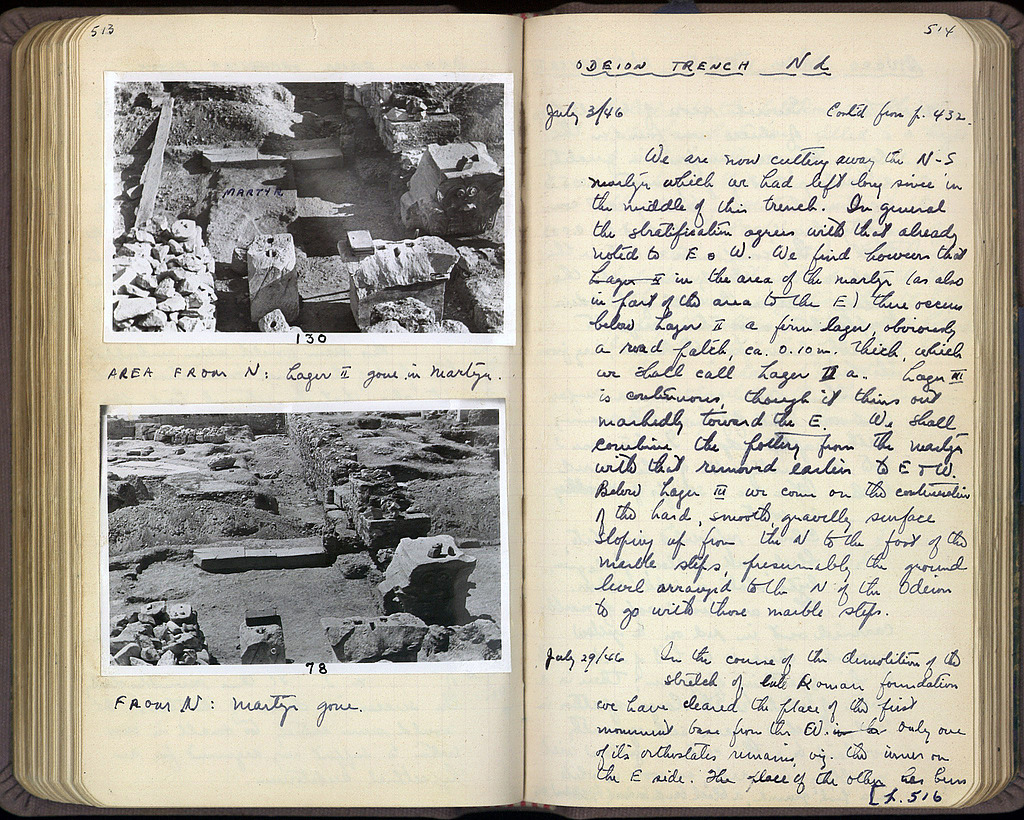 513
MARTYR
130
AREA FROM N: Layer II gone in Martyr.
78
FROM N: martyr gone.
514
ODEION TRENCH Nd
July 3/46 Cont'd from p. 432.
We are now cutting away the N-S
martyr which we had left long since in
the middle of this trench. In general
the stratification agrees with that already
noted to E & W. We find however that
Layer II in the area of the martyr (as also
in part of the area to the E) there occurs
below Layer II a firm layer, obviously
a road patch, ca. 0.10 m. thick, which
we shall call Layer II a. Layer III
is continuous, though it thins out
markedly toward the E. We shall
combine the pottery from the martyr
with that removed earlier to E & W.
Below Layer III we come on the continuation
of the hard, smooth, gravelly surface
sloping up from the N to the foot of the
marble steps, presumably the ground
level arranged to the N of the Odeion
to go with those marble steps.
July 29/46 In the course of the demolition of the
stretch of late Roman foundation
we have cleared the place of the first
monument base from the W. Only one
of its orthostates remains, viz. the inner on
the E side. The place of the other has been
[p. 516